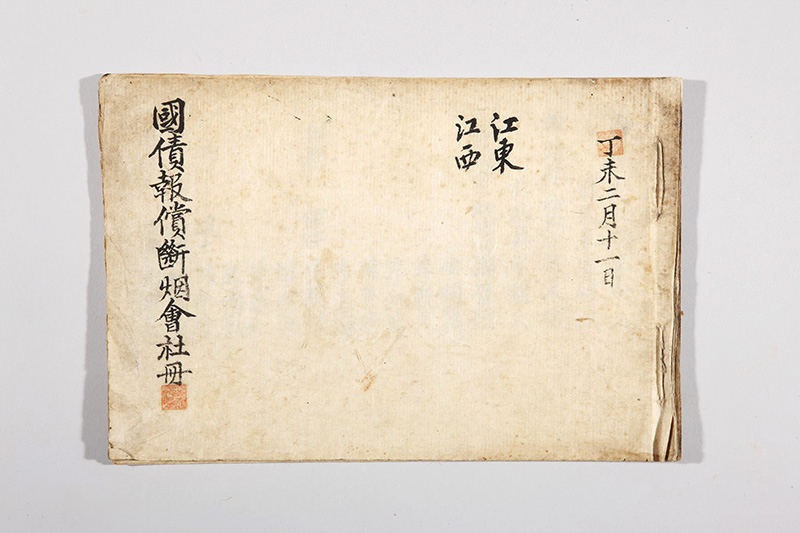 丁未二月十一日
江東
江西
國債報償斷烟會社冊